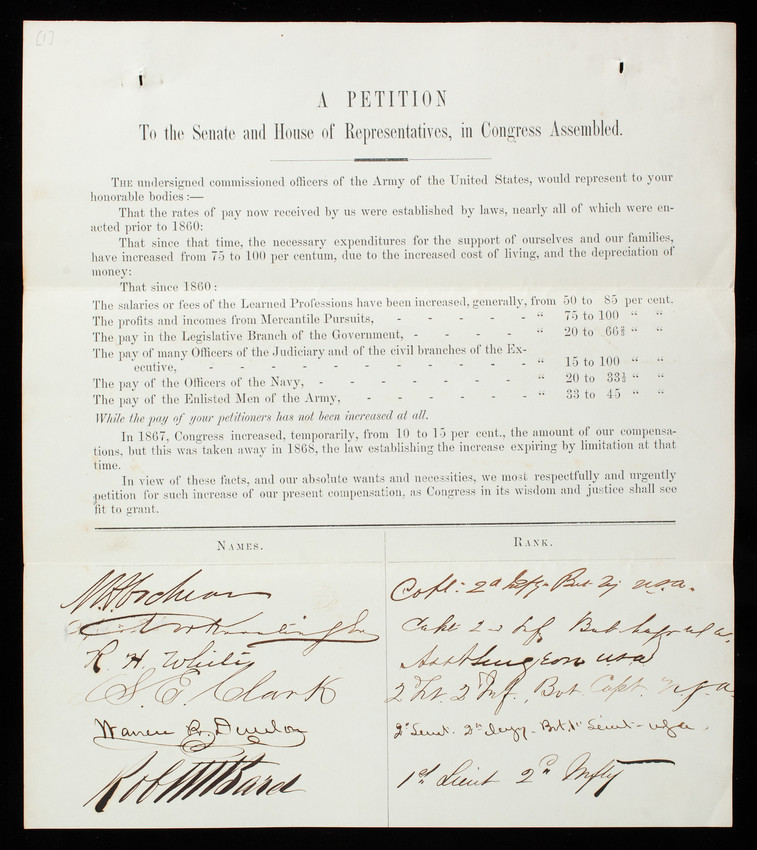 [1]
A PETITION
To the Senate and House of Representatives, in Congress Assembled.
THE undersigned commissioned officers of the Army of the United States, would represent to your
honorable bodies :—
That the rates of pay now received by us were established by laws, nearly all of which were en-
acted prior to 1860:
That since that time, the necessary expenditures for the support of ourselves and our families,
have increased from 75 to 100 per centum, due to the increased cost of living, and the depreciation of
money:
That since 1860 :
The salaries or fees of the Learned Professions have been increased, generally, from 50 to 85 per cent.
The profits and incomes from Mercantile Pursuits, - - - - - " 75 to 100 " "
The pay in the Legislative Branch of the Government, - - - - " 20 to 66⅔ " "
The pay of many Officers of the Judiciary and of the civil branches of the Ex-
ecutive, - - - - - - - - - - - " 15 to 100 " "
The pay of the Officers of the Navy, - - - - - - - " 20 to 33⅓ " "
The pay of the Enlisted Men of the Army, - - - - - - " 33 to 45 " "
While the pay of your petitioners has not been increased at all.
In 1867, Congress increased, temporarily, from 10 to 15 per cent., the amount of our compensa-
tions, but this was taken away in 1868, the law establishing the increase expiring by limitation at that
time.
In view of these facts, and our absolute wants and necessities, we most respectfully and urgently
petition for such increase of our present compensation, as Congress in its wisdom and justice shall see
fit to grant.
NAMES. RANK.
Capt: 2d Infy. Bvt Mj U.S.A.
Capt 2d Inf Bvt U.S.A.
R. H. White Asst Surgeon USA
S. E. Clark 2 Lt. 2 Inf., Bvt. Capt. U.S.A.
Warren R. Dunton 2d Lieut. 2d Infy - Bvt 1st Lieut - USA.
1st Lieut 2nd Infty